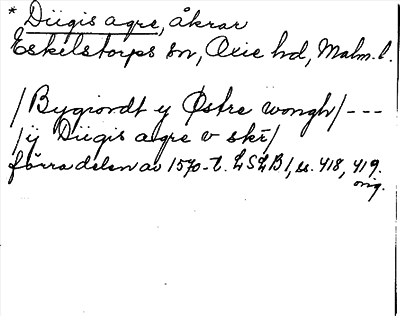 * Diigis agre, åkrar
Eskelstorps sn, Oxie hd, Malm. l.
/Bygiordt y Østre wongh/ ---
/ij Diigis agre v skr/
förra delen av 1570-t. LSLB 1, ss. 418, 419.
orig.